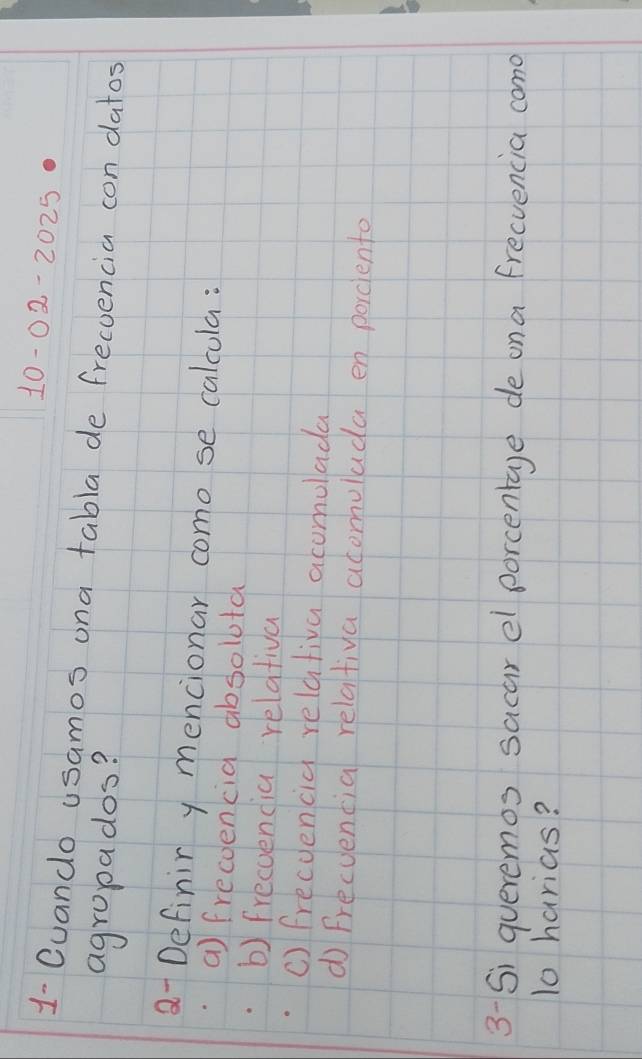 10-02-2025.
1- Cuando usamos una tabla de frecuencia con datos
agrupados?
2- Definir y mencionar como se calcula:
. a) frecuencia absoluta
. b) frecuencia relativa
. c) frecuencia relativa acumulada
d) frecuencia relativa acomulada en porciento
3- Si queremos sacar el porcentaje de una frecuencia como
lo harias?